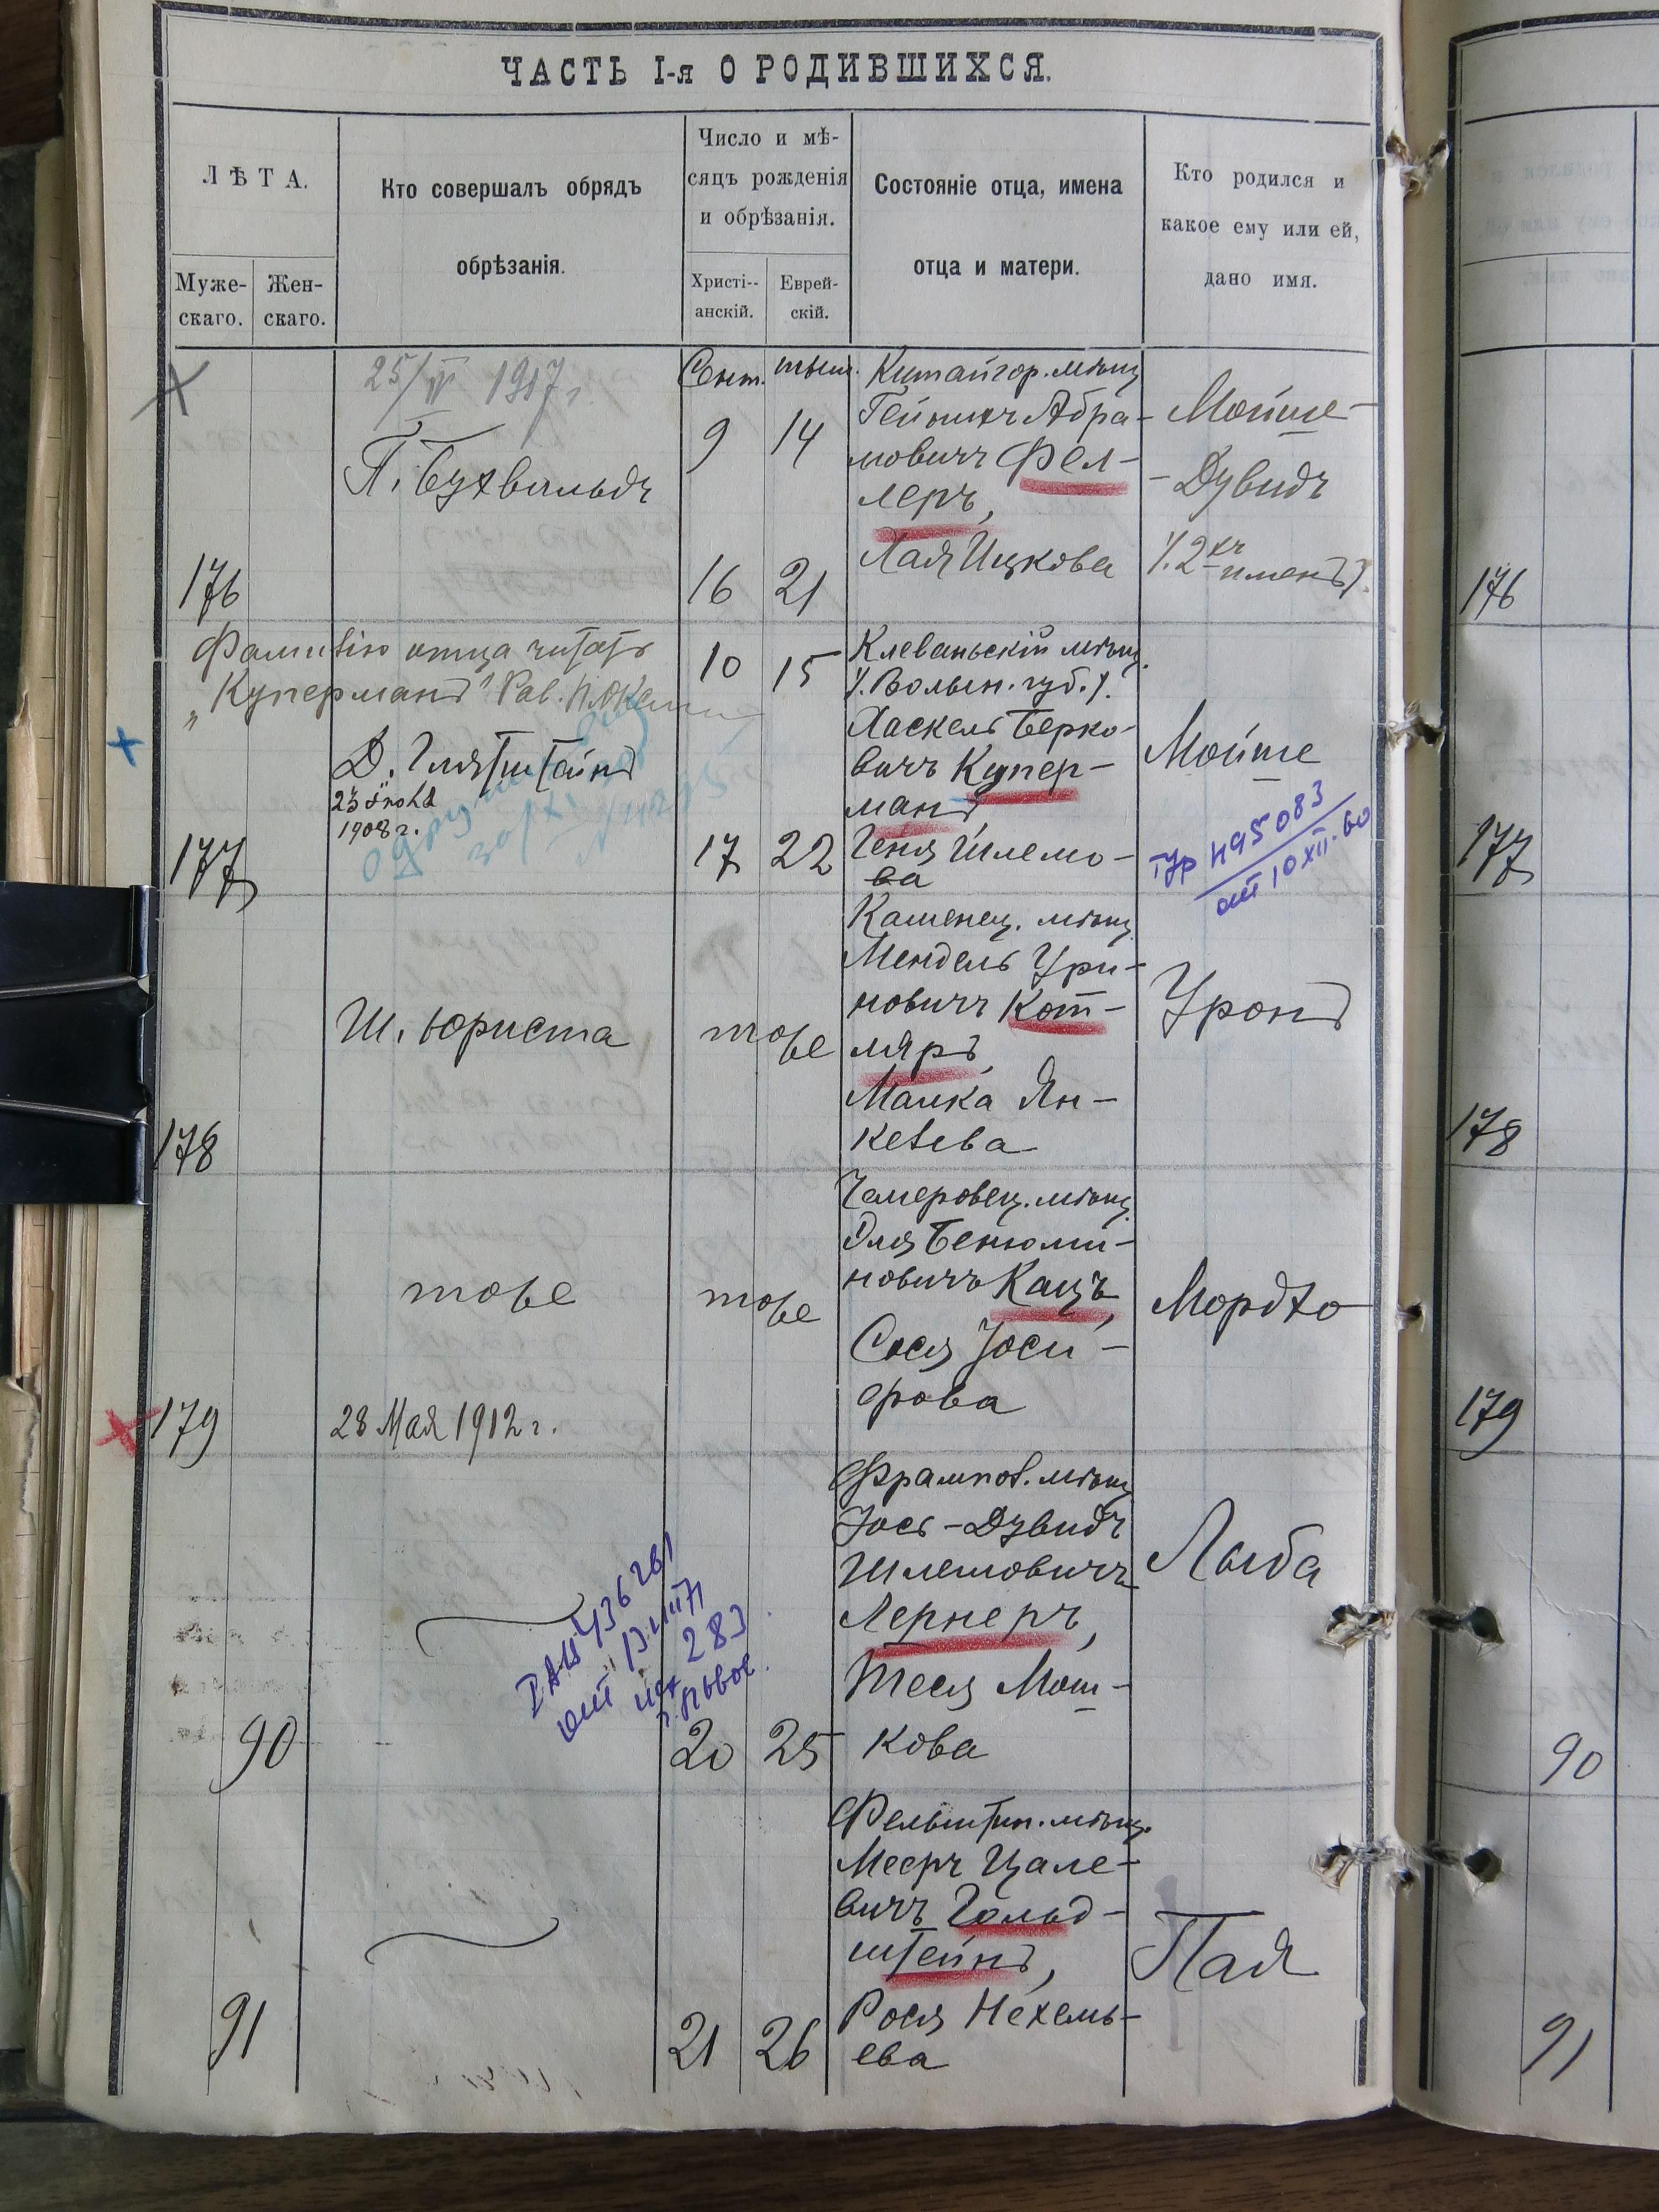 ЧАСТЬ I-я О РОДИВШИХСЯ.
ЛѢТА.
Муже-
скаго.
Жен-
скаго.
Кто совершалъ обрядъ
обрѣзанія.
Число и мѣ-
сяцъ рожденія
и обрѣзанія.
Христі--
анскій.
Еврей-
скій.
Состояніе отца, имена
отца и матери.
Кто родился и
какое ему или ей,
дано имя.
25/VI 1917 г.
П. Бухвальдъ
176
Сент. тыш.
9 14
16 21
Китайгор. мѣщ
Абра-
мовичъ Фел-
леръ,
Хая Ицкова
Мойше-
- Дувидъ
(2хъ
именъ).
176
Фамилію отца читать
„Куперманъ" Рав.
Д. Глятштейнъ
23
1908 г.
177
10 15
17 22
Клеваньскій мѣщ.
(Волын. губ.).
Хаскель Берко-
вичъ Купер-
манъ,
Геня Шлемо-
ва
Мойше
495083
от 10 XII.60
177
Ш. Юриста
178
тоже
Каменец. мѣщ
Мендель Ури-
новичъ Кот-
ляръ,
Малка Ян-
келева
Уронъ
178
тоже
28 Мая 1912 г.
179
тоже
Чемеровец. мѣщ.
Эля Бенюми-
новичъ Кацъ,
Сося Іоси-
фова
Мордхо
179
90
20 25
Фрампол. мѣщ
Іось-Дувидъ
Шлемовичъ
Лернеръ,
Теся Мош-
кова
Лыба
283
90
91
21 26
Фельштин. мѣщ.
Мееръ Цале-
вичъ Гольд-
штейнъ,
Рося Нехемь-
ева
Пая
91